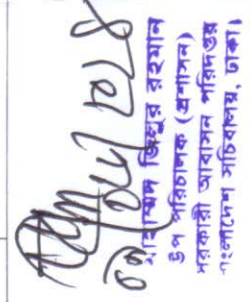 মোহাম্মদ জিল্লুর রহমান
উপ পরিচালক (প্রশাসন)
সরকারী আবাসন পরিদপ্তর
বাংলাদেশ সচিবালয়, ঢাকা।